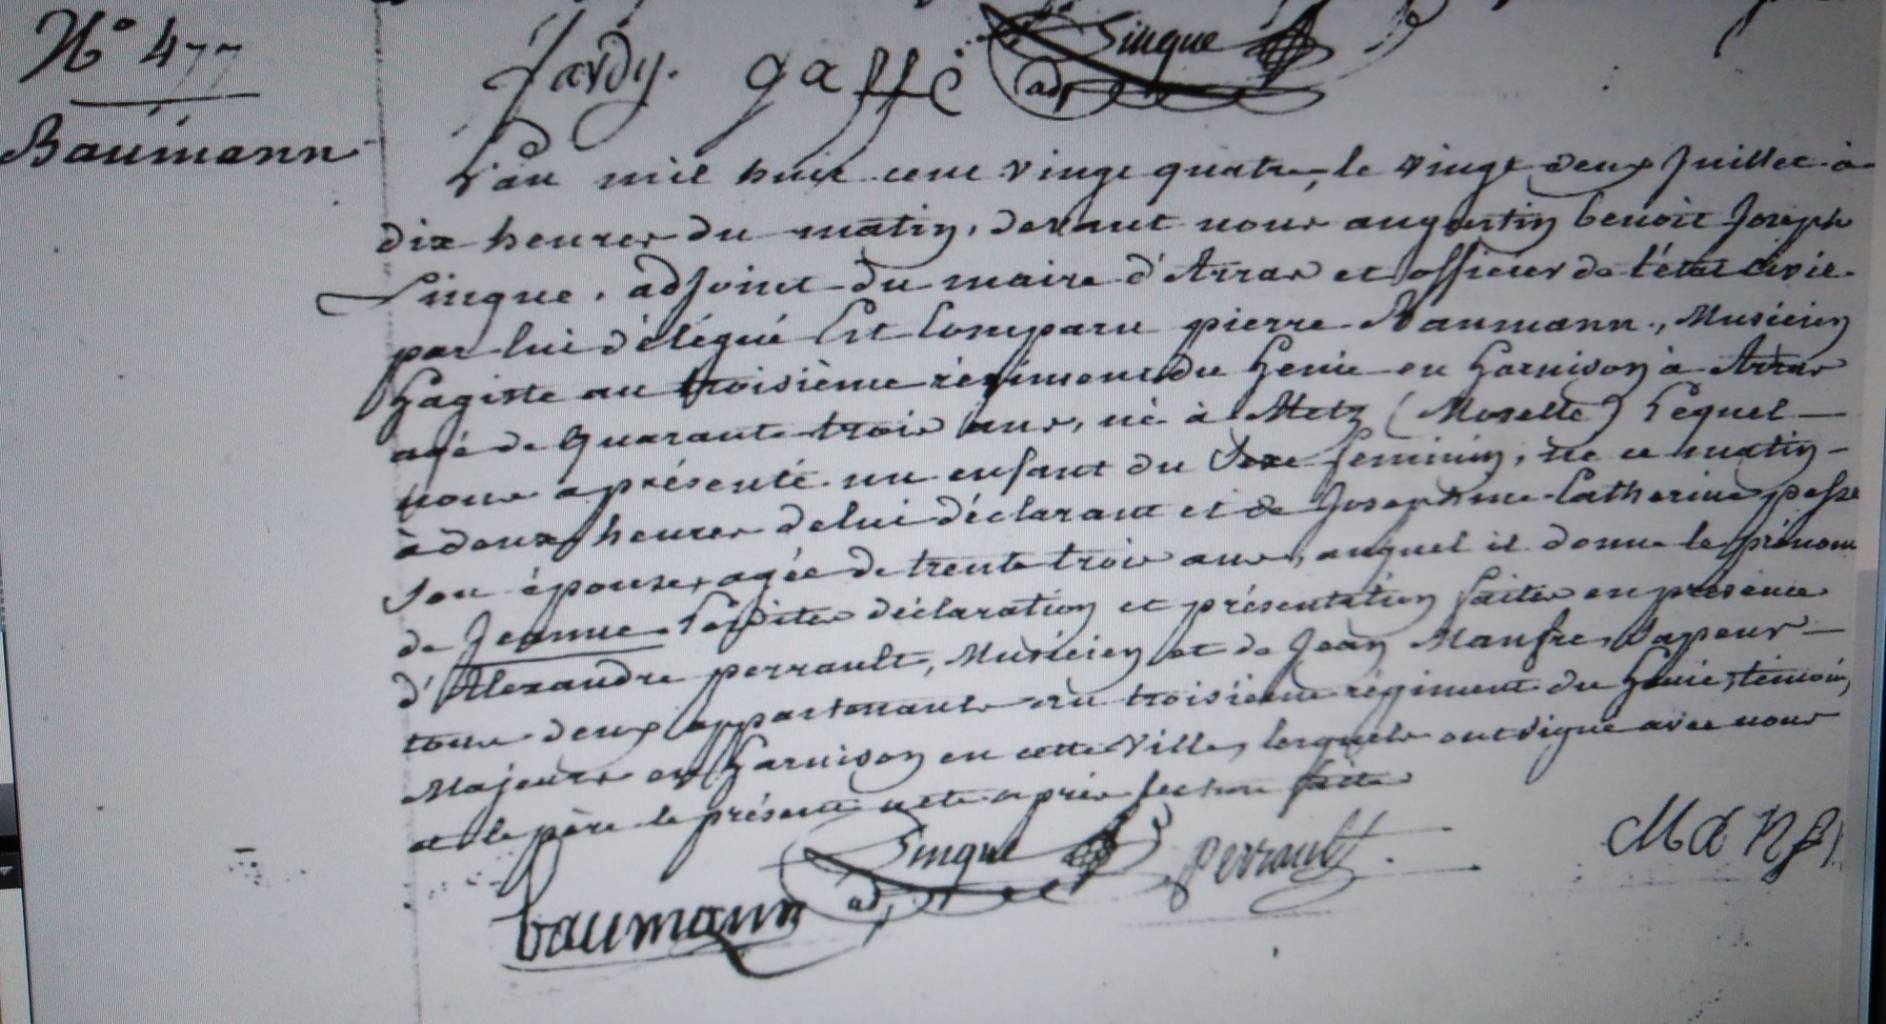 N° 477
Baumann
Jardy. gaffé Linque
adj
L'an mil huit cent vingt quatre, le vingt deux Juillet à
dix heures du matin, devant nous augustin benoit Joseph
Linque, adjoint du maire d'Arras et officier de l'état civil
par lui délégué Est Comparu pierre Baumann, Musicien
Gagiste au troisième régiment du Génie en Garnison à Arras
agé de quarante trois ans, né à Metz (Moselle) Lequel
nous a présenté un enfant du Sexe féminin, né ce matin
à deux heures de lui déclarant et de Josephine Catherine
son épouse, agée de trente trois ans, auquel il donne le prénom
de Jeanne Lesdites déclaration et présentation faites en présence
d'Alexandre perrault, Musicien et de Jean Manfre, Sapeur
tous deux appartenants au troisième régiment du Génie, témoins
Majeurs en Garnison en cette Ville, lesquels ont signé avec nous
et le père le présent acte après lecture faite
Linque perrault
baumann adj